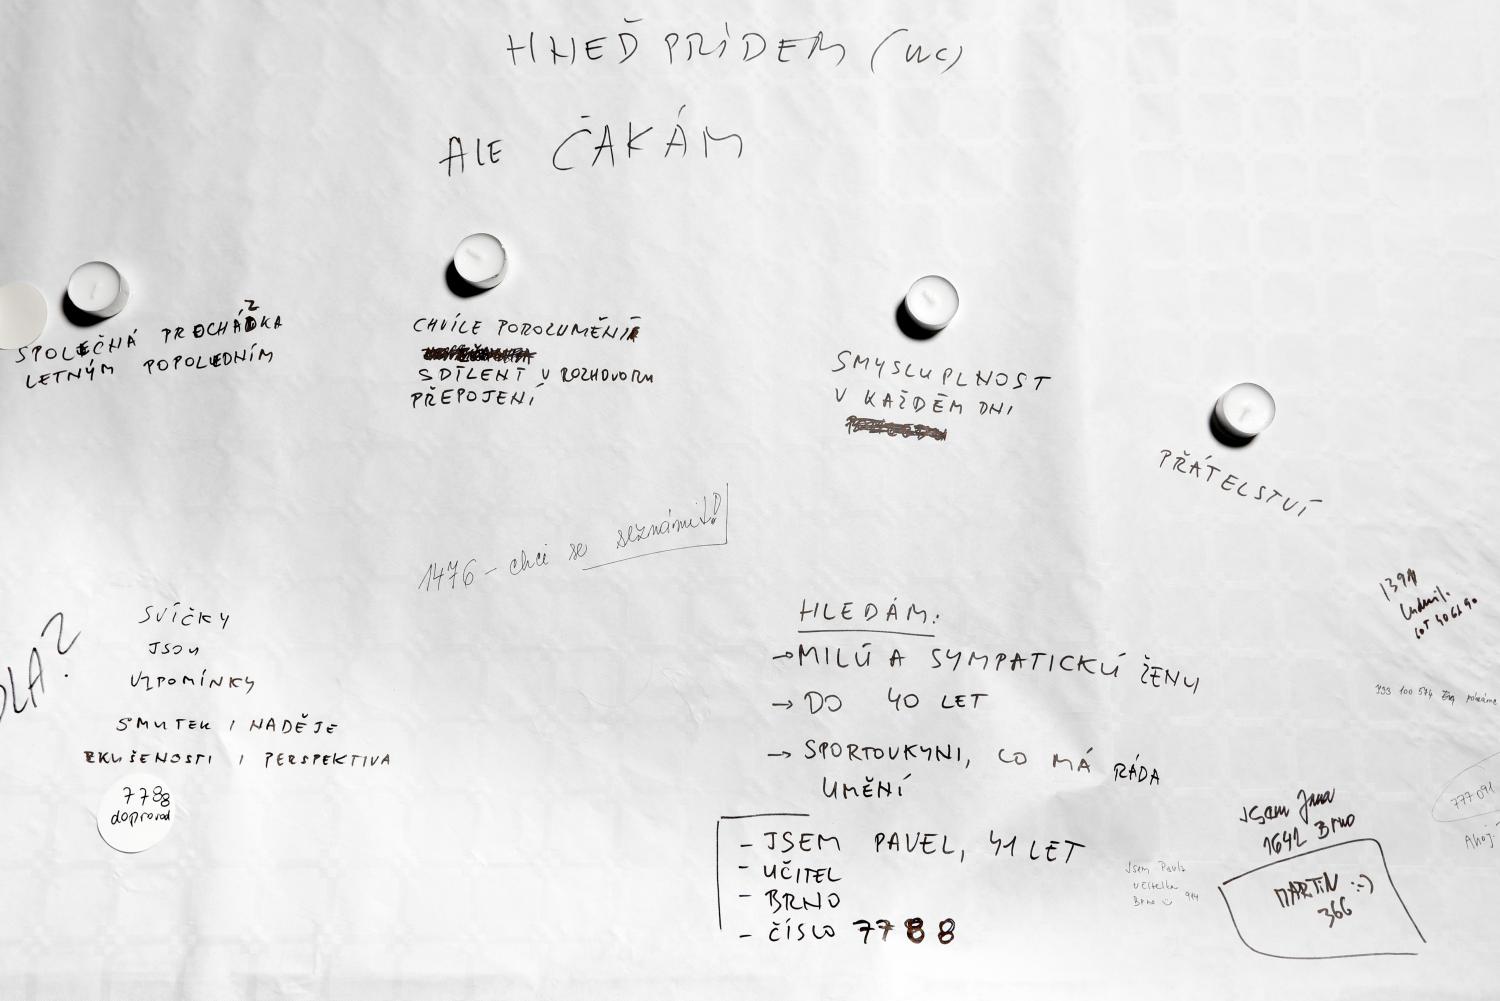 HNEĎ PRÍDEM (WC)
ALE ČAKÁM
SPOLEČNÁ PROCHÁZKA
LETNÝM POPOLEDNÍM
CHVÍLE POROZUMĚNÍ
SDÍLENÍ V ROZHOVORU
PŘEPOJENÍ
SMYSLUPLNOST
V KAŽDÉM DNI
PŘÁTELSTVÍ
1476 - chci se seznámit!
SVÍČKY
JSOU
VZPOMÍNKY
SMUTEK I NADĚJE
ZKUŠENOSTI I PERSPEKTIVA
7788
doprovod
HLEDÁM:
→ MILÚ A SYMPATICKÚ ŽENU
→ DO 40 LET
→ SPORTOVKYNI, CO MÁ RÁDA
UMĚNÍ
- JSEM PAVEL, 41 LET
- UČITEL
- BRNO
- ČÍSLO 7788
Jsem Pavla
učitelka
Brno 914
Jsem Jana
1642 Brno
MARTIN :-)
366
777 091
Ahoj